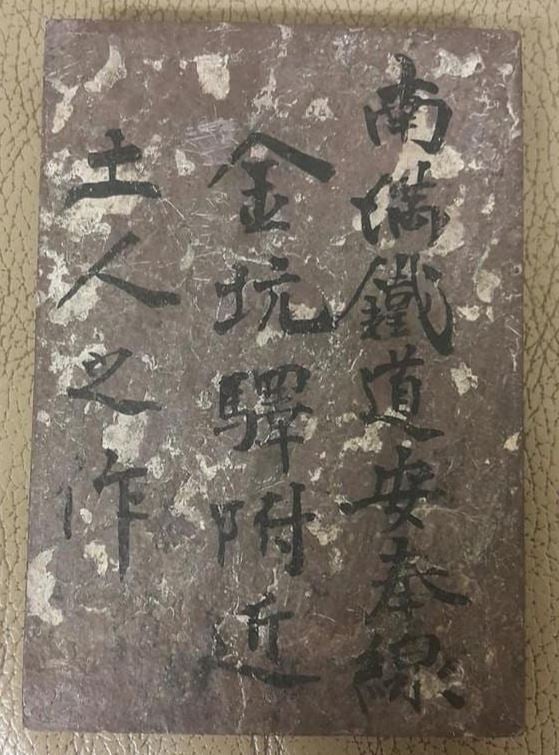 南満鐵道安奉線
金坑驛附近
土人之作